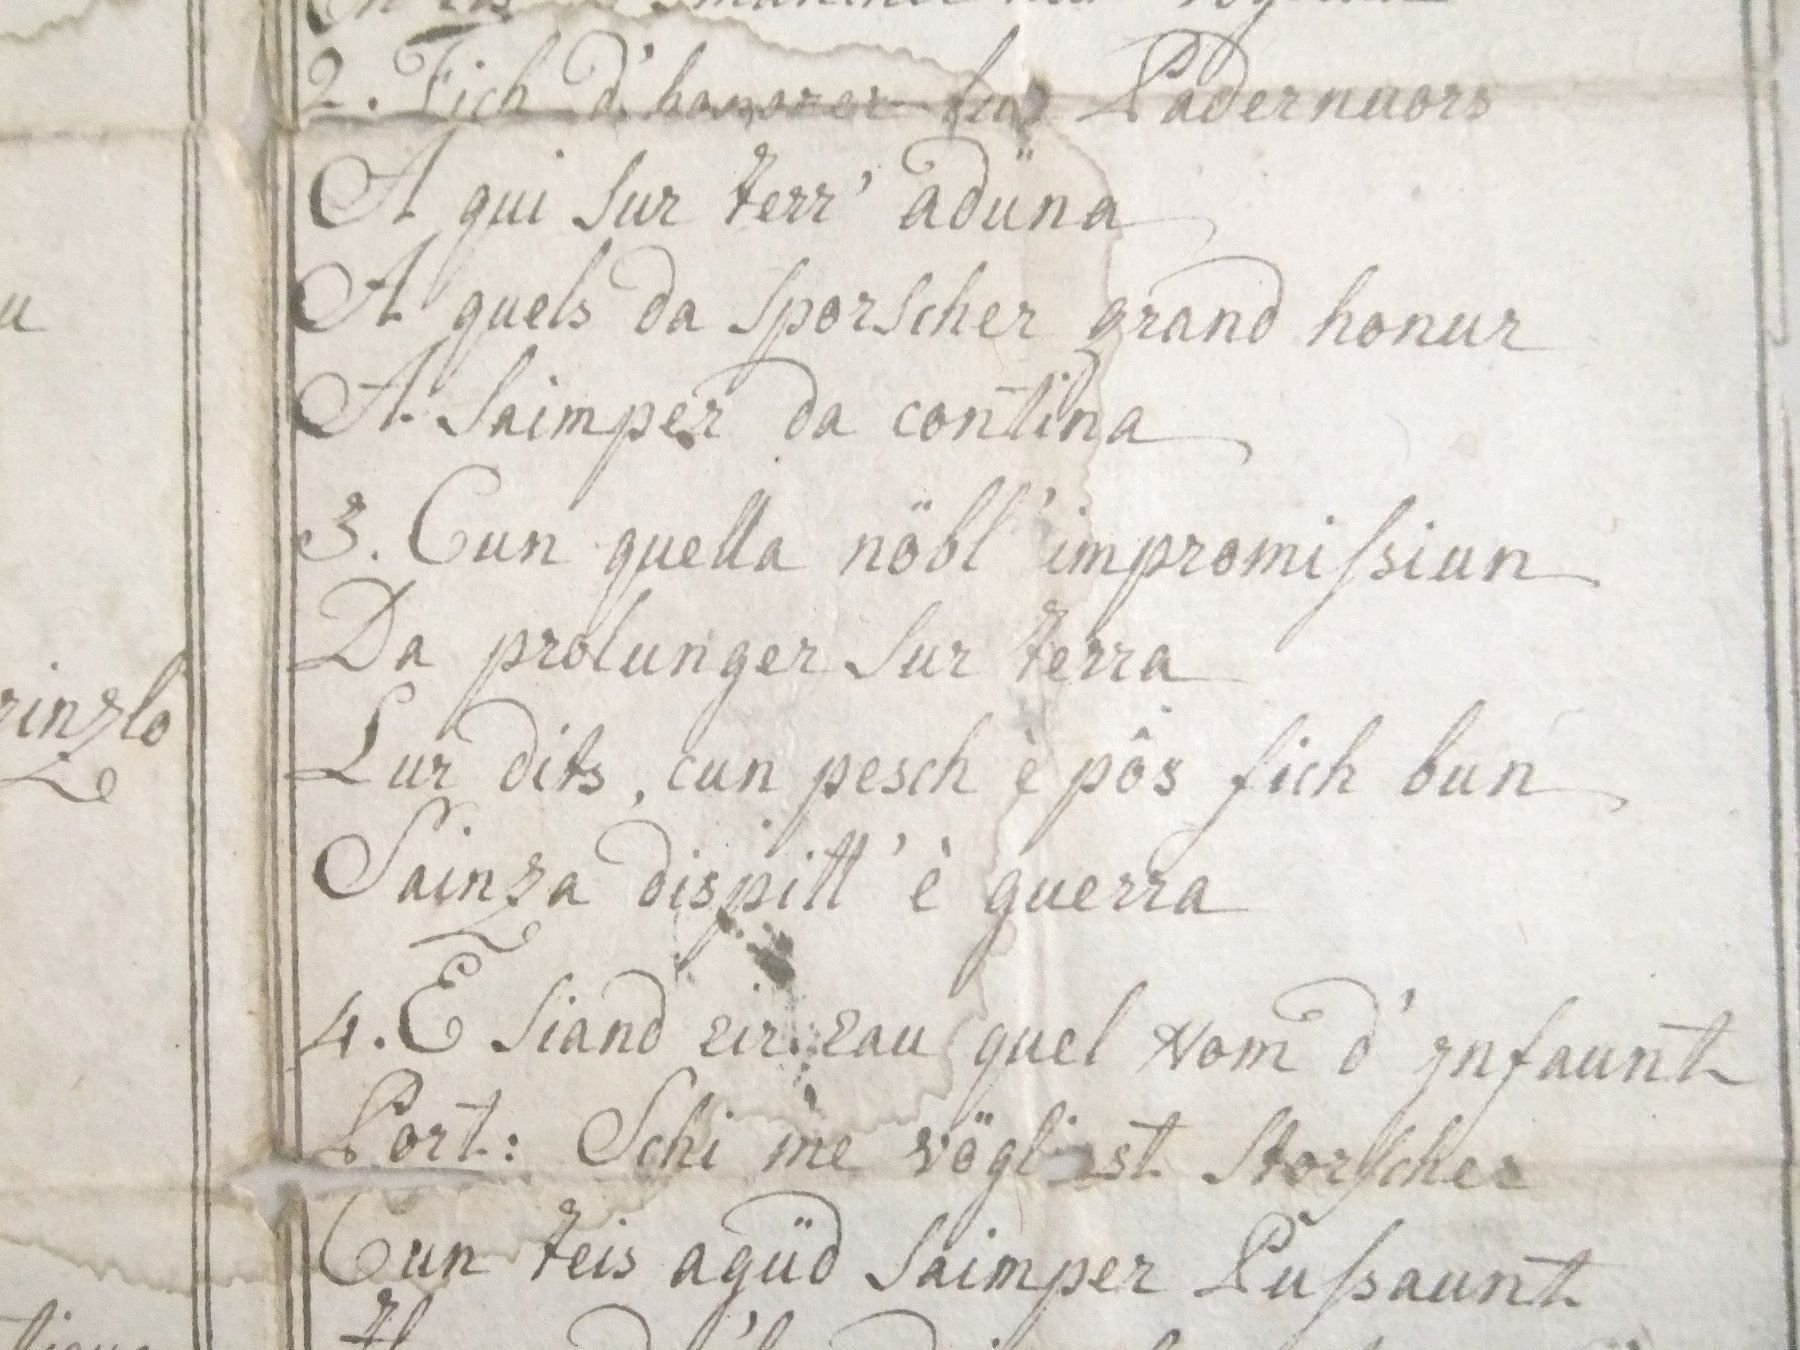 2. Fich d'hanorer lur Padernuors
A qui sur terr' adüna
A quels da sporscher grand honur
A saimper da contina
3. Cun quella nöbl' impromissiun
Da prolunger sur terra
Lur dits, cun pesch è pôs fich bun
Sainza dispitt' è guerra
4. E siand eir eau quel Nom d'Infaunt
Port: Schi me vögliast storscher
Cun teis agüd saimper Pussaunt
rinzlo